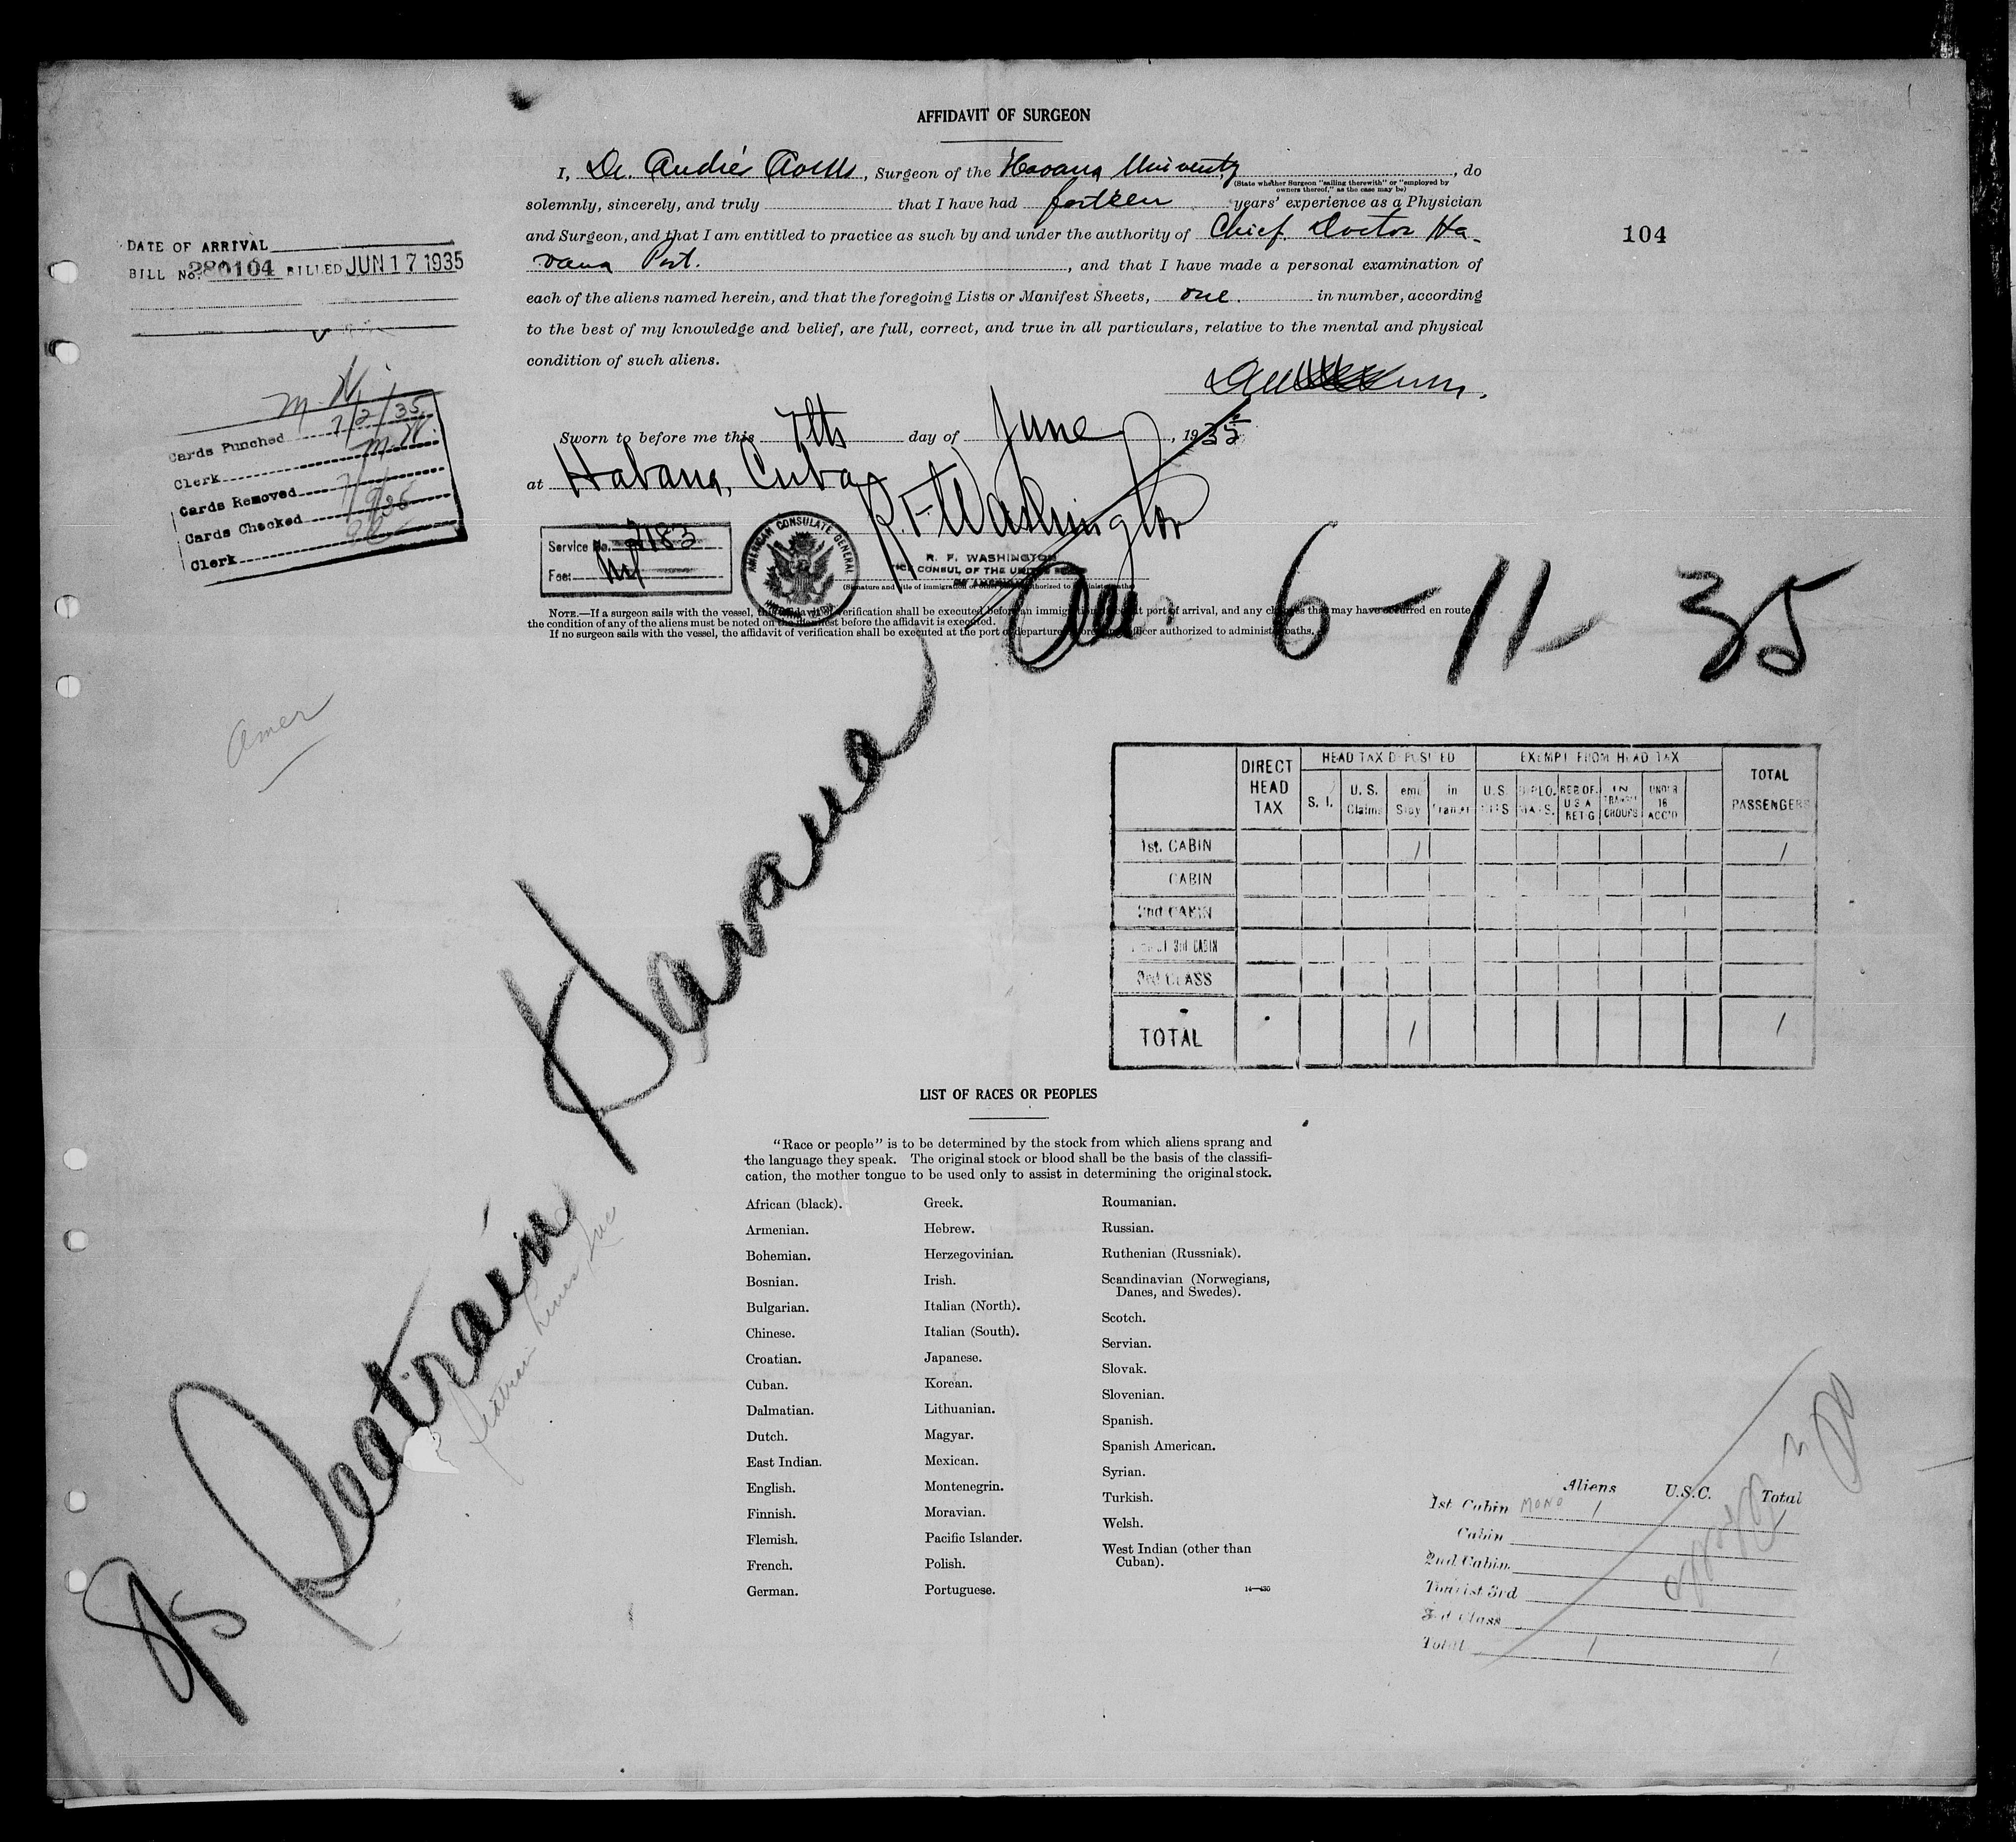 AFFIDAVIT OF SURGEON
I, Dr. André , Surgeon of the Havana University, do
(State whether Surgeon "sailing therewith" or "employed by
owners thereof," as the case may be)
solemnly, sincerely, and truly that I have had years' experience as a Physician
and Surgeon, and that I am entitled to practice as such by and under the authority of Chief Doctor Ha-
vana Port. , and that I have made a personal examination of
each of the aliens named herein, and that the foregoing Lists or Manifest Sheets, one. in number, according
to the best of my knowledge and belief, are full, correct, and true in all particulars, relative to the mental and physical
condition of such aliens.
104
DATE OF ARRIVAL
BILL No. 280104 BILLED JUN 17 1935
M. W.
Cards Punched 7/2/35
Clerk M. W.
Cards Removed
Cards Checked 7/9/35
Clerk
Sworn to before me this 7th day of June, 1935
at Habana, Cuba
R. F. Washington
Service No. 7183
Fee: No
AMERICAN CONSULATE GENERAL
R. F. WASHINGTON
VICE CONSUL OF THE UNITED STATES
OF AMERICA
NOTE.—If a surgeon sails with the vessel, the affidavit of verification shall be executed before an immigration officer at port of arrival, and any changes that may have occurred en route
the condition of any of the aliens must be noted on the manifest before the affidavit is executed.
If no surgeon sails with the vessel, the affidavit of verification shall be executed at the port of departure before an officer authorized to administer oaths.
6-11-35
Amer
S/S Seatrain Havana
Seatrain Lines Inc
DIRECT HEAD TAX
HEAD TAX DEPOSITED
EXEMPT FROM HEAD TAX
TOTAL PASSENGERS
S. I. U. S. Claims Stay in Transit U.S. DIPLO. RES OF. U S A RET'G IN TRANSIT GROUPS UNDER 16 ACC'D
1st. CABIN 1 1
CABIN
2nd CABIN
3rd CABIN
3rd CLASS
TOTAL 1 1
LIST OF RACES OR PEOPLES
"Race or people" is to be determined by the stock from which aliens sprang and
the language they speak. The original stock or blood shall be the basis of the classifi-
cation, the mother tongue to be used only to assist in determining the original stock.
African (black).
Armenian.
Bohemian.
Bosnian.
Bulgarian.
Chinese.
Croatian.
Cuban.
Dalmatian.
Dutch.
East Indian.
English.
Finnish.
Flemish.
French.
German.
Greek.
Hebrew.
Herzegovinian.
Irish.
Italian (North).
Italian (South).
Japanese.
Korean.
Lithuanian.
Magyar.
Mexican.
Montenegrin.
Moravian.
Pacific Islander.
Polish.
Portuguese.
Roumanian.
Russian.
Ruthenian (Russniak).
Scandinavian (Norwegians,
Danes, and Swedes).
Scotch.
Servian.
Slovak.
Slovenian.
Spanish.
Spanish American.
Syrian.
Turkish.
Welsh.
West Indian (other than
Cuban).
14—430
Aliens U.S.C. Total
1st Cabin MONO 1 1
Cabin
2nd Cabin
Tourist 3rd
3rd Class
Total 1 1